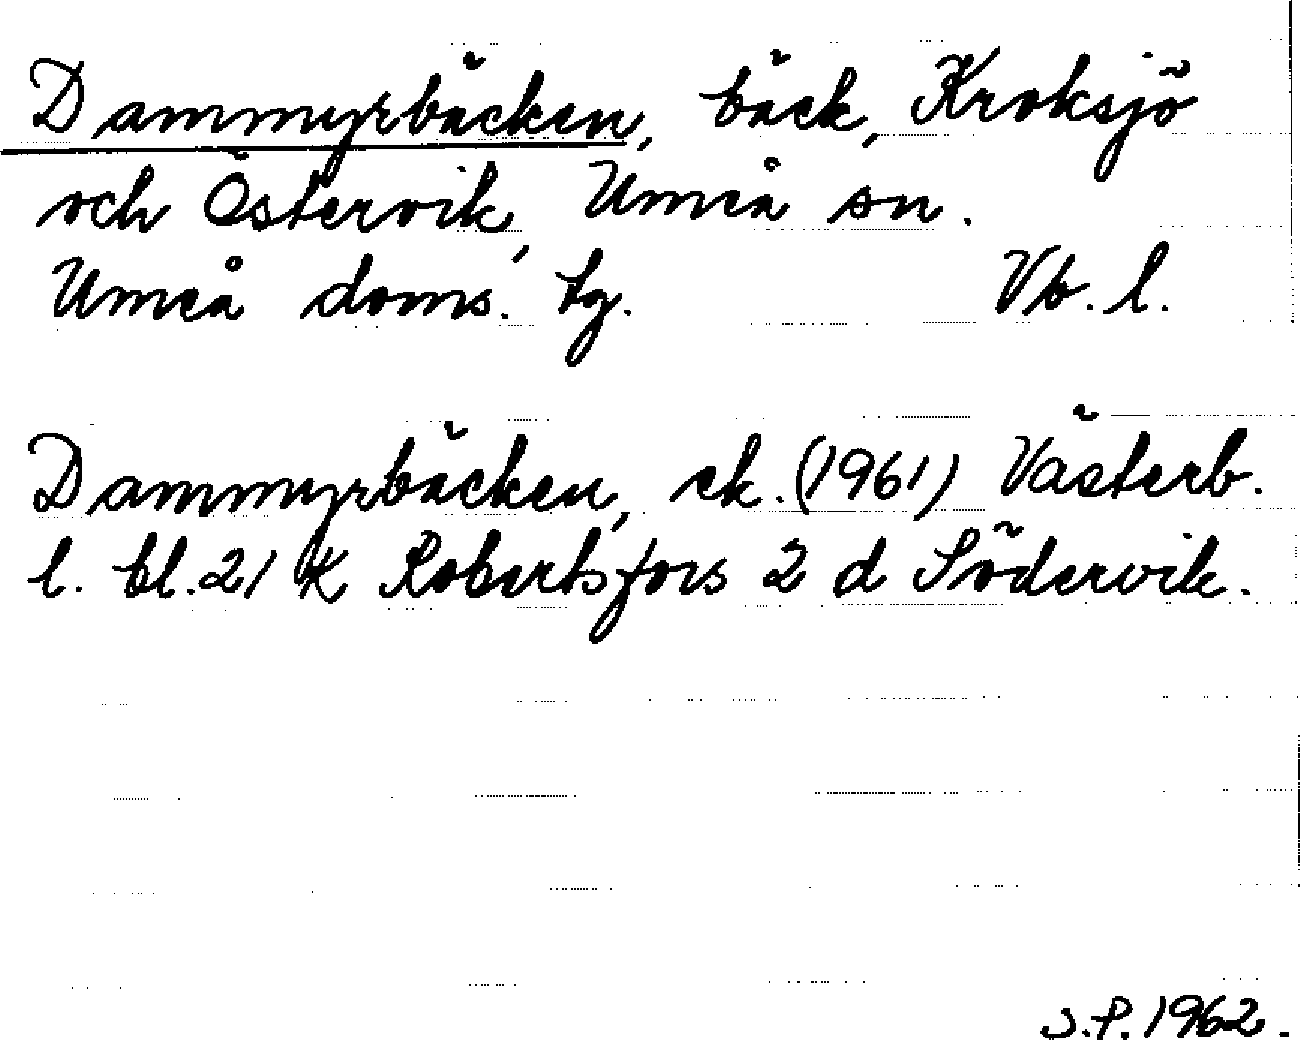 Dammyrbäcken, bäck, Kroksjö
och Östervik, Umeå sn.
Umeå doms. tg. Vb. l.
Dammyrbäcken, ek. (1961) Västerb.
l. bl. 21 K Robertsfors 2 d Södervik.
S.P. 1962.